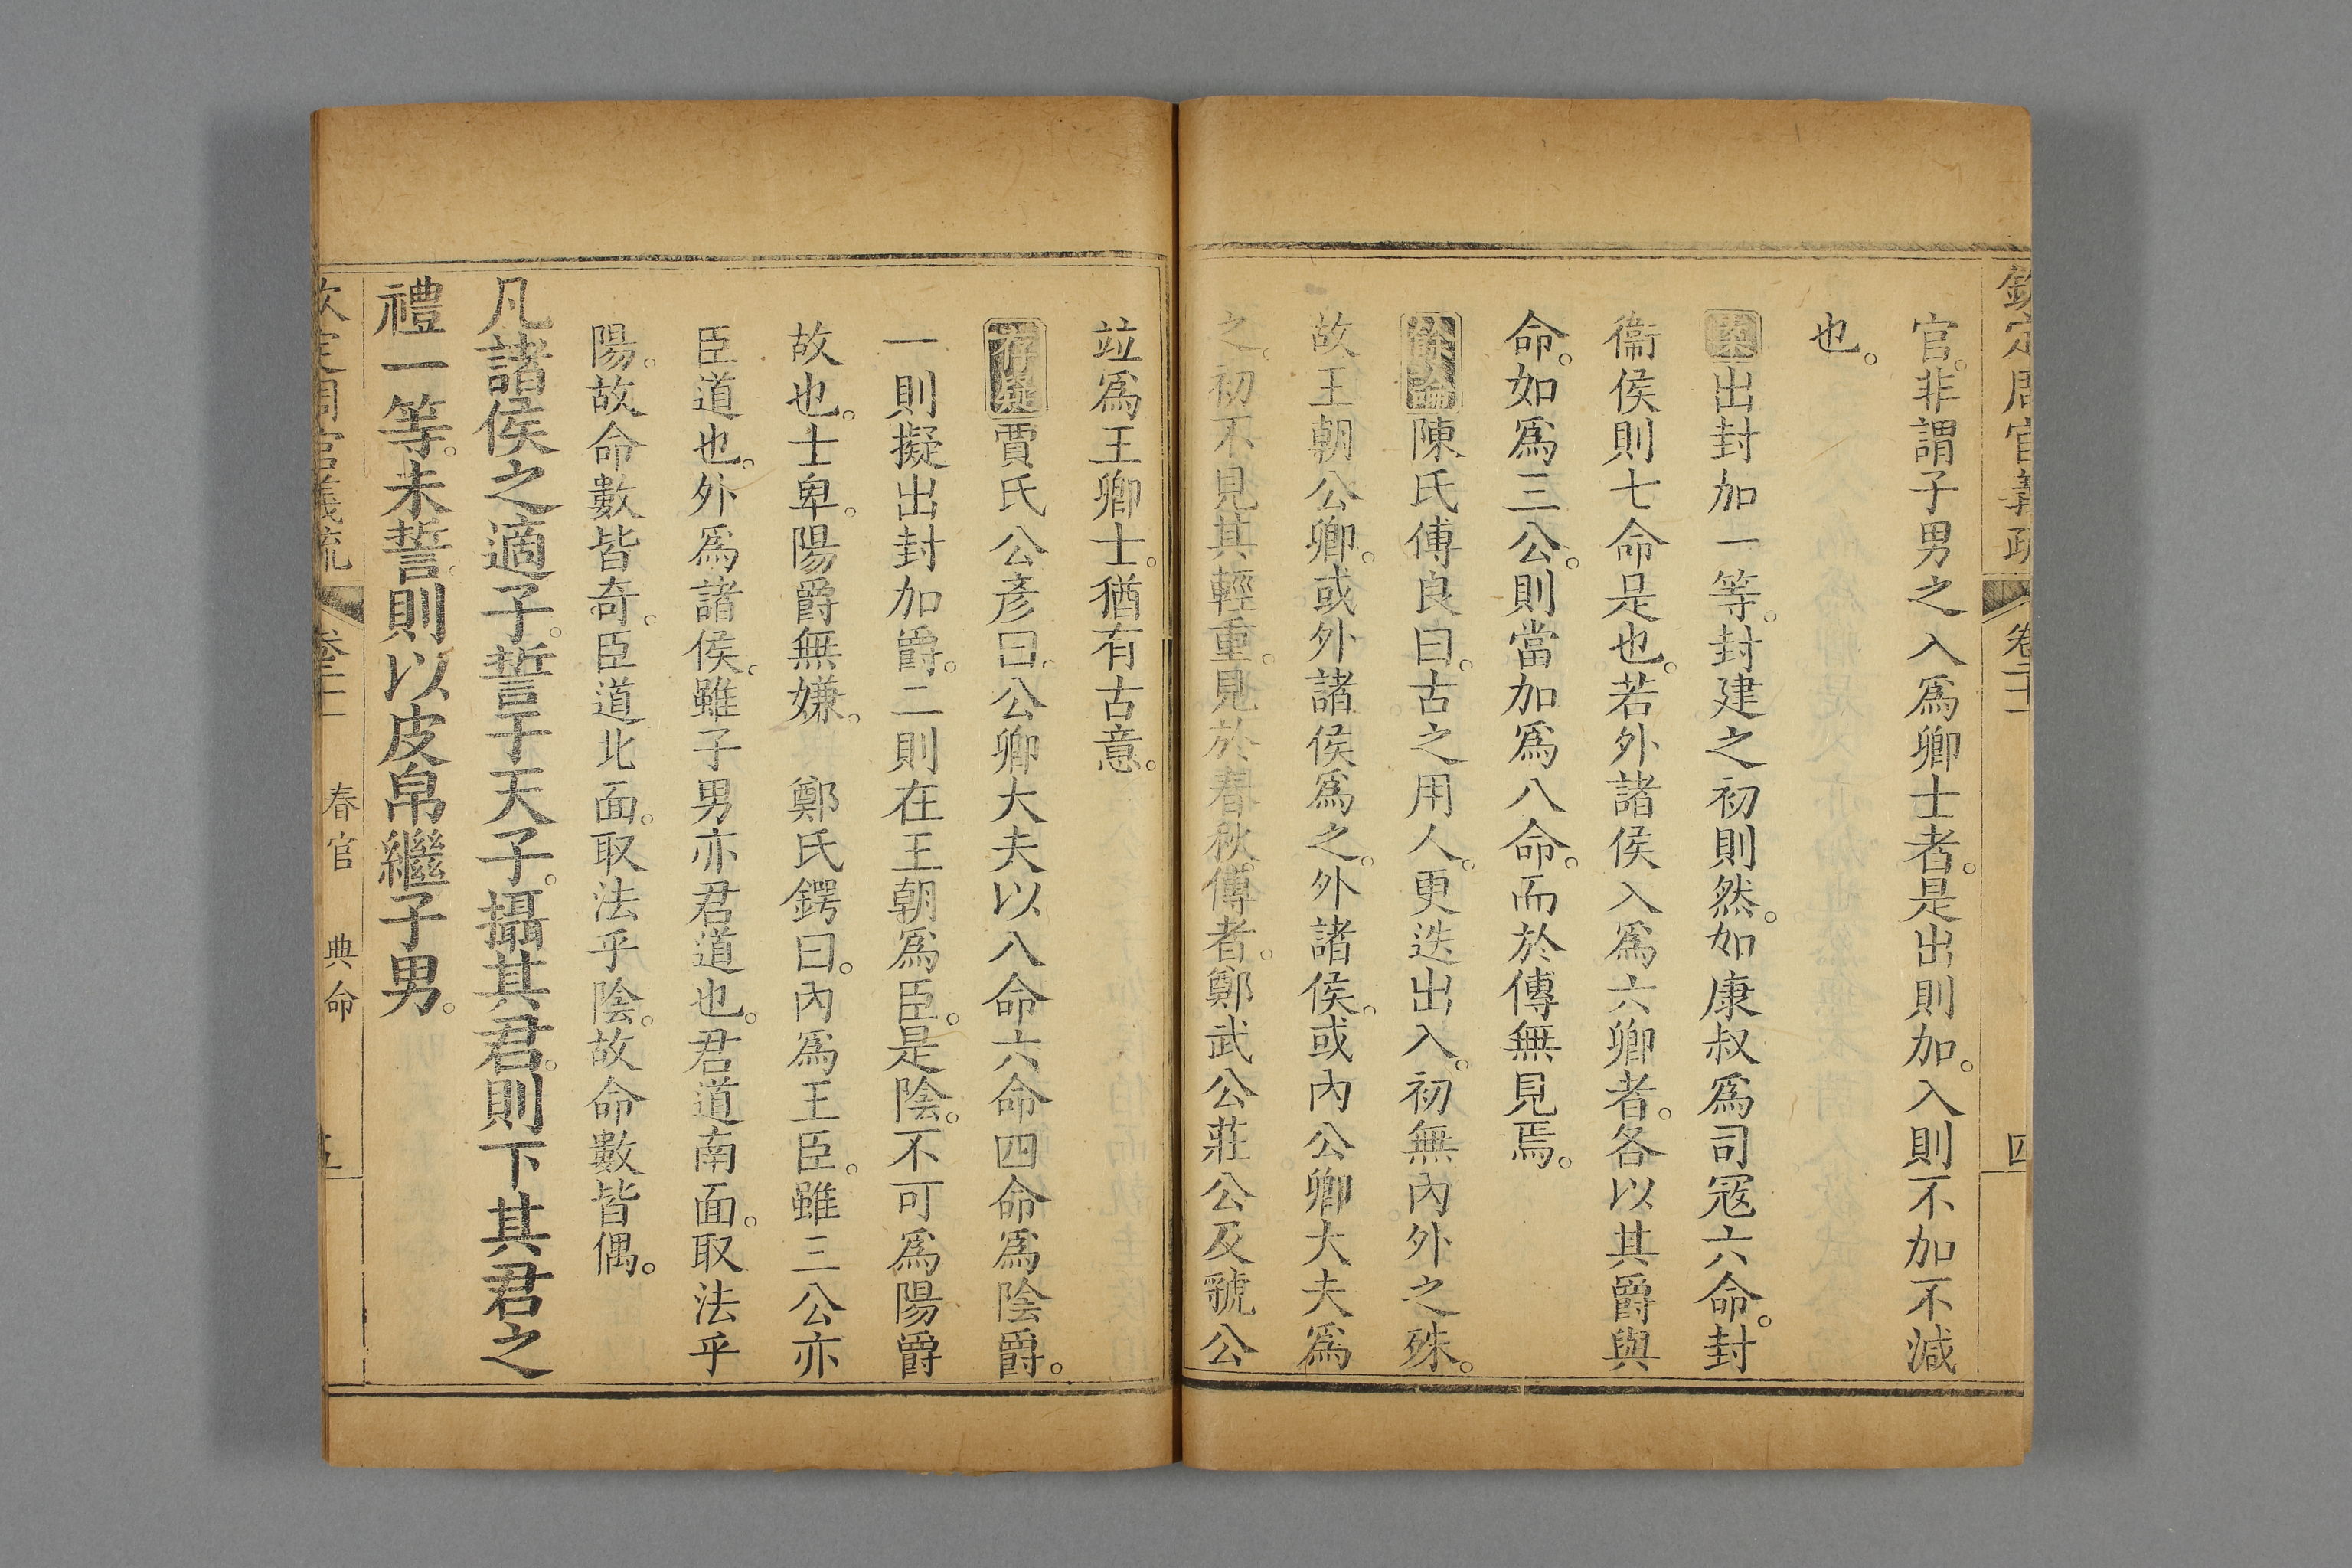 欽定周官義疏 卷二十一 四
官。非謂子男之入爲卿士者。是出則加。入則不加不減
也。
案出封加一等。封建之初則然。如康叔爲司寇六命。封
衞侯則七命是也。若外諸侯入爲六卿者。各以其爵與
命。如爲三公。則當加爲八命。而於傳無見焉。
餘論陳氏傅良曰。古之用人。更迭出入。初無內外之殊。
故王朝公卿。或外諸侯爲之。外諸侯。或內公卿大夫爲
之。初不見其輕重。見於春秋傳者。鄭武公莊公及虢公
竝爲王卿士。猶有古意。
存疑賈氏公彥曰。公卿大夫以八命六命四命爲陰爵。
一則擬出封加爵。二則在王朝爲臣。是陰。不可爲陽爵
故也。士卑。陽爵無嫌。 鄭氏鍔曰。內爲王臣。雖三公亦
臣道也。外爲諸侯。雖子男亦君道也。君道南面。取法乎
陽。故命數皆奇。臣道北面。取法乎陰。故命數皆偶。
凡諸侯之適子。誓于天子。攝其君。則下其君之
禮一等。未誓。則以皮帛繼子男。
欽定周官義疏 卷二十一 春官 典命 五